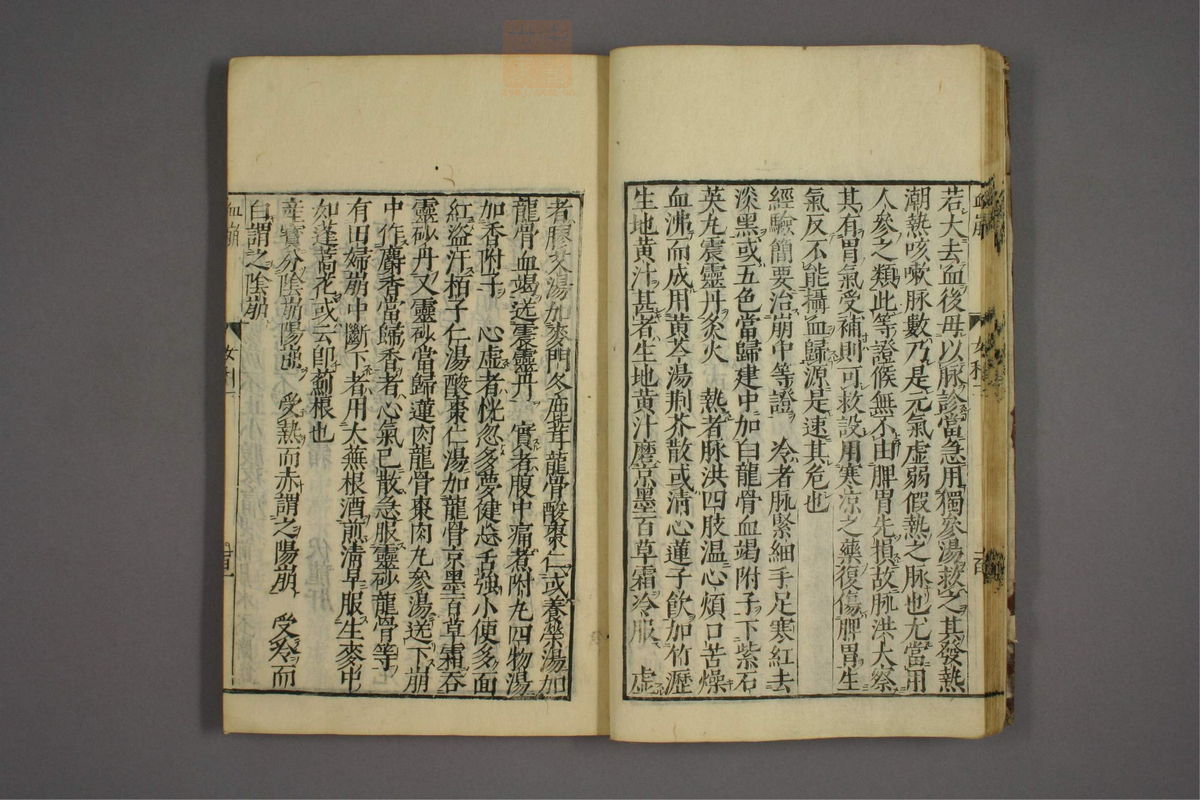 若大去血後毋以脉診當急用獨參湯救之其發熱
潮熱咳嗽脉數乃是元氣虛弱假熱之脉也尤當用
人參之類此等證候無不由脾胃先損故脉洪大察
其有胃氣受補則可救設用寒凉之藥復傷脾胃生
氣反不能攝血歸源是速其危也
經驗簡要治崩中等證 冷者脉緊細手足寒紅去
淡黑或五色當歸建中加白龍骨血竭附子下紫石
英丸震靈丹灸火 熱者脉洪四肢温心煩口苦燥
血沸而成用黄芩湯荆芥散或清心蓮子飲加竹瀝
生地黄汁甚者生地黄汁磨京墨百草霜冷服 虛
者膠艾湯加麥門冬鹿茸龍骨酸棗仁或養榮湯加
龍骨血竭送震靈丹 實者腹中痛者附丸四物湯
加香附子 心虛者恍忽多夢健忘舌強小便多面
紅盗汗栢子仁湯酸棗仁湯加龍骨京墨百草霜吞
靈砂丹又靈砂當歸蓮肉龍骨棗肉丸參湯送下崩
中作麝香當歸香者心氣已散急服靈砂龍骨等
有田婦崩中斷下者用大蕪根酒煎清旦服生麥中
如蓬蒿花或云即薊根也
産寶分陰崩陽崩 受熱而赤謂之陽崩 受冷而
白謂之陰崩
血崩